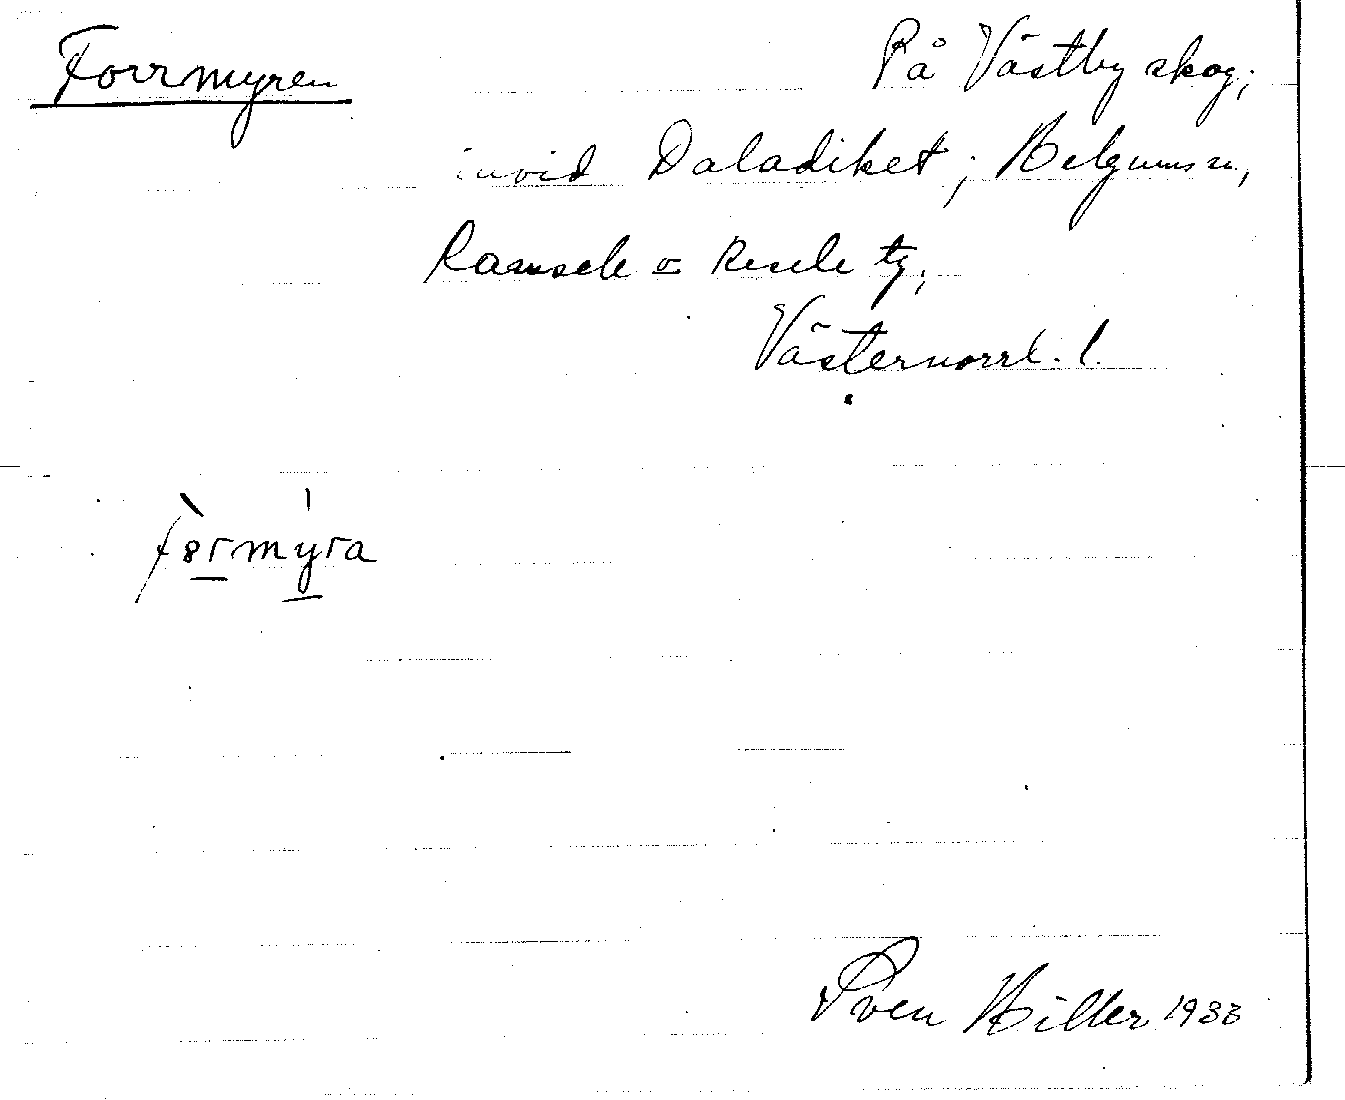 Forrmyren
På Västby skog;
invid Daladiket; Helgums sn,
Ramsele o Resele tg,
Västernorrl. l.
fɵrmyra
Sven Hiller 1933